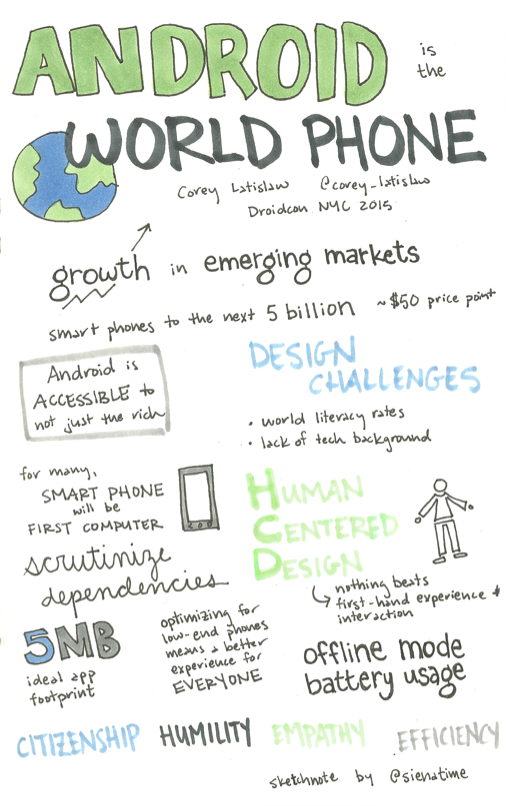 ANDROID is
the
WORLD PHONE
Corey Latislaw @corey_latislaw
Droidcon NYC 2015
growth in emerging markets
smart phones to the next 5 billion ~$50 price point
Android is
ACCESSIBLE to
not just the rich
DESIGN
CHALLENGES
• world literacy rates
• lack of tech background
for many,
SMART PHONE
will be
FIRST COMPUTER
HUMAN
CENTERED
DESIGN
nothing beats
first-hand experience +
interaction
scrutinize
dependencies
5MB
ideal app
footprint
optimizing for
low-end phones
means a better
experience for
EVERYONE
offline mode
battery usage
CITIZENSHIP HUMILITY EMPATHY EFFICIENCY
sketchnote by @sienatime